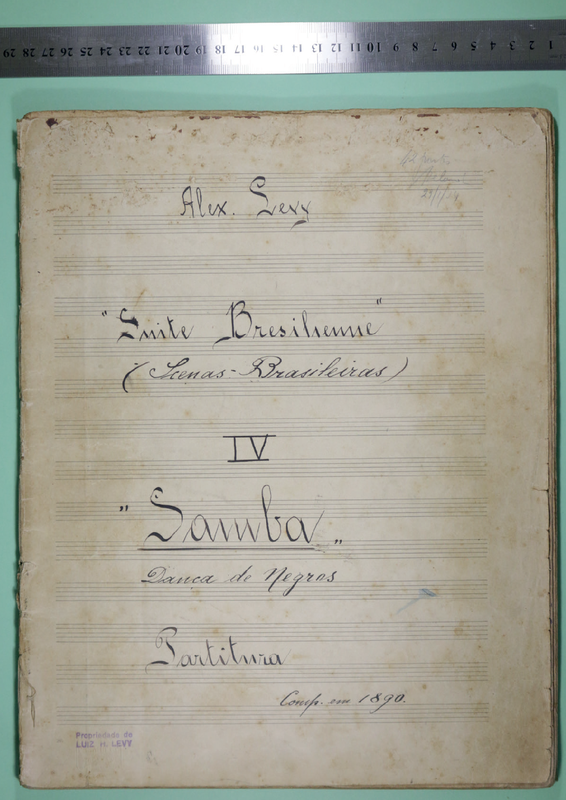 29 28 27 26 25 24 23 22 21 20 19 18 17 16 15 14 13 12 11 10 9 8 7 6 5 4 3 2 1
23/1/
Alex. Levy
"Suite Bresilienne"
(Scenas-Brasileiras)
IV
"Samba"
Dança de Negros
Partitura
Comp. em 1890.
Propriedade de
LUIZ H. LEVY